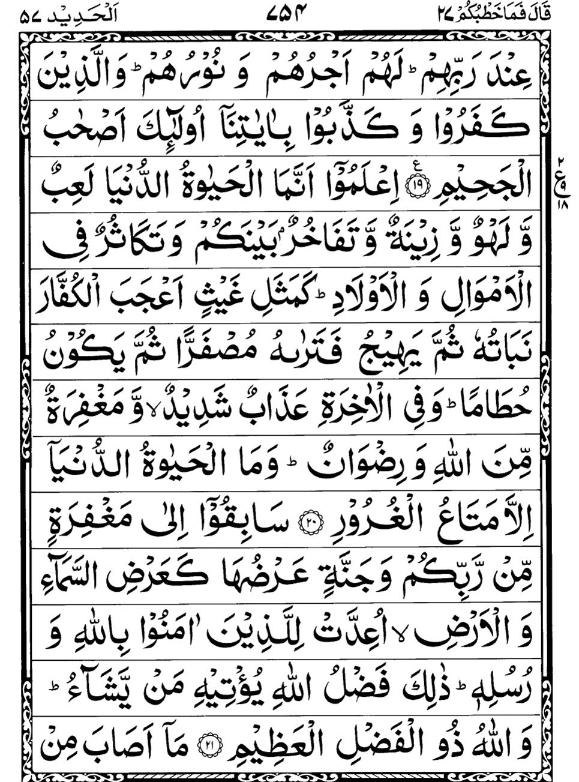 قَالَ فَمَا خَطْبُكُمْ ۲۷ ۷۵۴ اَلْحَدِيْد ۵۷
عِنْدَ رَبِّهِمْ ؕ لَهُمْ اَجْرُهُمْ وَ نُوْرُهُمْ ؕ وَالَّذِيْنَ
كَفَرُوْا وَ كَذَّبُوْا بِاٰيٰتِنَاۤ اُولٰٓئِكَ اَصْحٰبُ
الْجَحِيْمِ ۧ ﴿۱۹﴾ اِعْلَمُوْۤا اَنَّمَا الْحَيٰوةُ الدُّنْيَا لَعِبٌ
وَّ لَهْوٌ وَّ زِيْنَةٌ وَّ تَفَاخُرٌۢ بَيْنَكُمْ وَ تَكَاثُرٌ فِى
الْاَمْوَالِ وَ الْاَوْلَادِ ؕ كَمَثَلِ غَيْثٍ اَعْجَبَ الْكُفَّارَ
نَبَاتُهٗ ثُمَّ يَهِيْجُ فَتَرٰىهُ مُصْفَرًّا ثُمَّ يَكُوْنُ
حُطَامًا ؕ وَفِى الْاٰخِرَةِ عَذَابٌ شَدِيْدٌ ۙ وَّ مَغْفِرَةٌ
مِّنَ اللّٰهِ وَ رِضْوَانٌ ؕ وَمَا الْحَيٰوةُ الدُّنْيَاۤ
اِلَّا مَتَاعُ الْغُرُوْرِ ﴿۲۰﴾ سَابِقُوْۤا اِلٰى مَغْفِرَةٍ
مِّنْ رَّبِّكُمْ وَ جَنَّةٍ عَرْضُهَا كَعَرْضِ السَّمَآءِ
وَ الْاَرْضِ ۙ اُعِدَّتْ لِلَّذِيْنَ اٰمَنُوْا بِاللّٰهِ وَ
رُسُلِهٖ ؕ ذٰلِكَ فَضْلُ اللّٰهِ يُؤْتِيْهِ مَنْ يَّشَآءُ ؕ
وَ اللّٰهُ ذُو الْفَضْلِ الْعَظِيْمِ ﴿۲۱﴾ مَاۤ اَصَابَ مِنْ
۲
ع ۹
۱۸